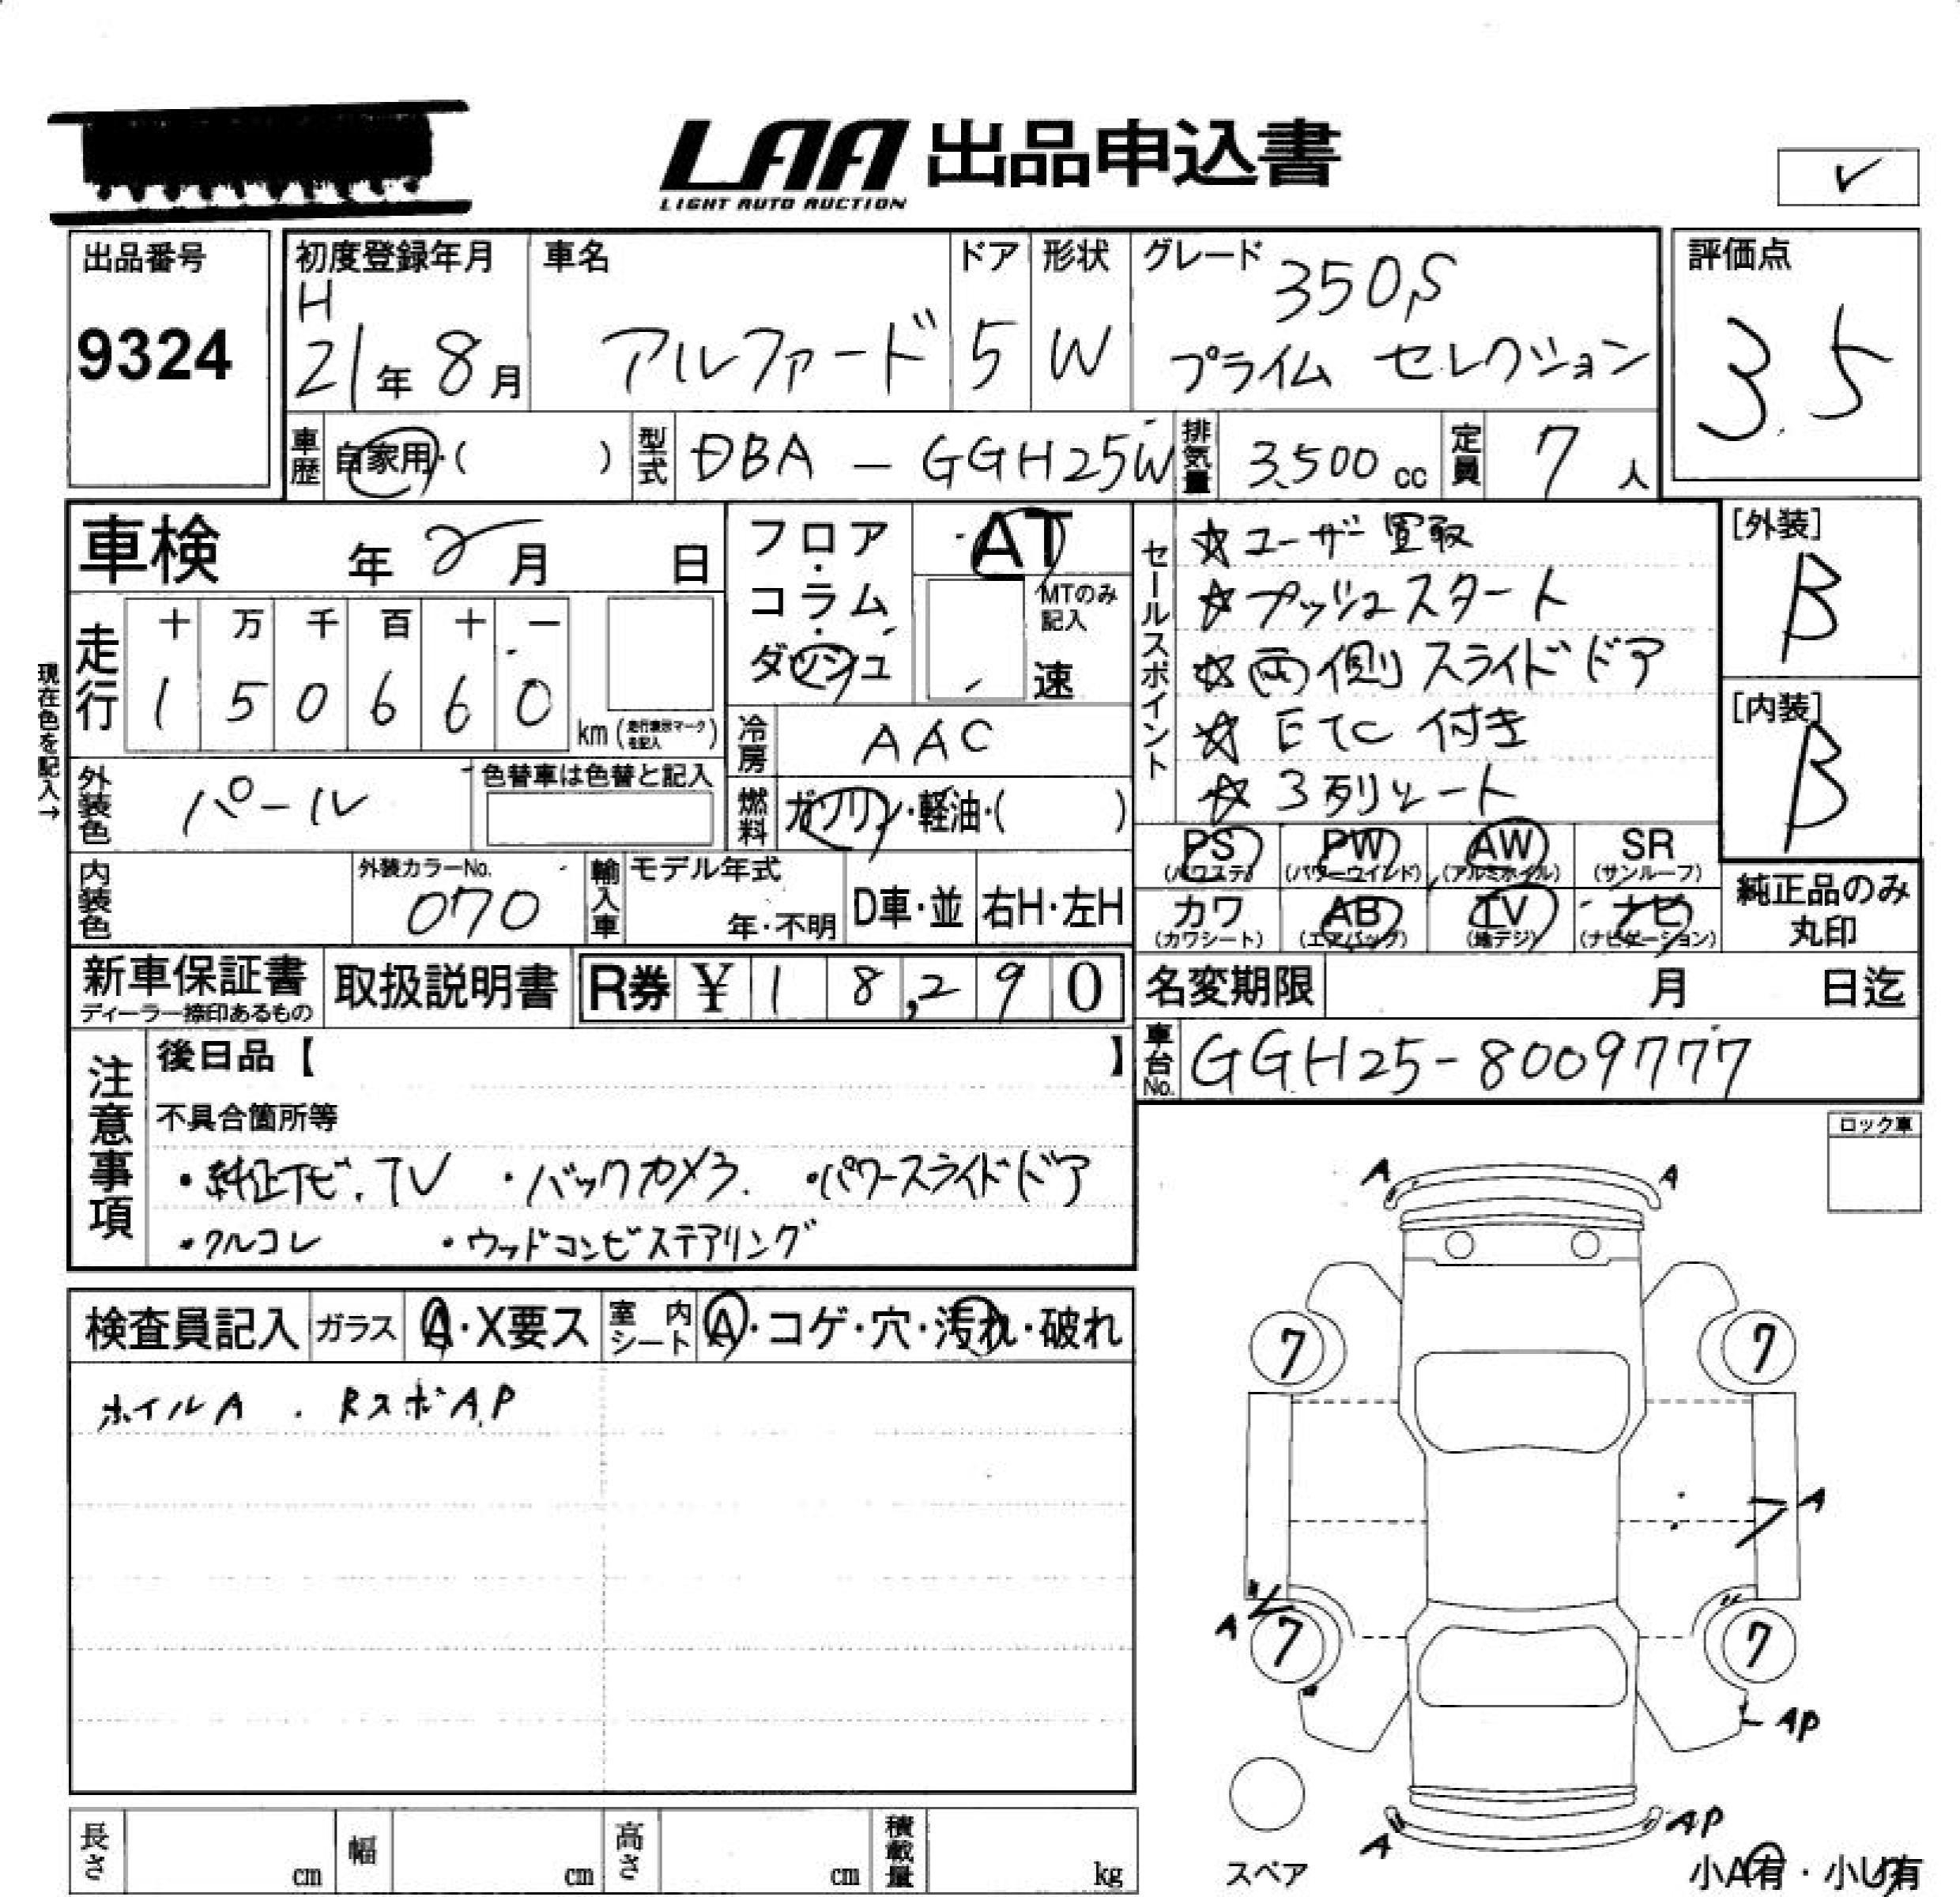 LAA 出品申込書
LIGHT AUTO AUCTION
出品番号
9324
初度登録年月
H
21年 8月
車名
アルファード
ドア
5
形状
W
グレード
350S
プライム セレクション
評価点
3.5
車歴
自家用・( )
型式
DBA - GGH25W
排気量
3,500 cc
定員
7 人
車検 年 月 日
フロア・コラム・ダッシュ
AT
MTのみ記入
速
セールスポイント
☆ユーザー買取
☆プッシュスタート
☆両側スライドドア
☆ETC付き
☆3列シート
[外装]
B
[内装]
B
現在色を記入→
走行
十 万 千 百 十 一
1 5 0 6 6 0
km (走行表示マークを記入)
冷房
AAC
外装色
パール
色替車は色替と記入
燃料
ガソリン・軽油・( )
PS (パワステ)
PW (パワーウインド)
AW (アルミホイル)
SR (サンルーフ)
カワ (カワシート)
AB (エアバッグ)
TV (地デジ)
ナビ (ナビゲーション)
純正品のみ
丸印
内装色
外装カラーNo.
070
輸入車
モデル年式
年・不明
D車・並
右H・左H
新車保証書
ディーラー捺印あるもの
取扱説明書
R券 ¥ 1 8,2 9 0
名変期限 月 日迄
車台No.
GGH25-8009777
注意事項
後日品【 】
不具合箇所等
・純正ナビ、TV ・バックカメラ. ・パワースライドドア
・クルコレ ・ウッドコンビステアリング
ロック車
検査員記入
ガラス
A・X要ス
室内シート
A・コゲ・穴・汚れ・破れ
ホイルA . RスポA,P
A A
7 7
A
A
7 7
AP
A AP
スペア
小A有・小U有
長さ cm
幅 cm
高さ cm
積載量 kg